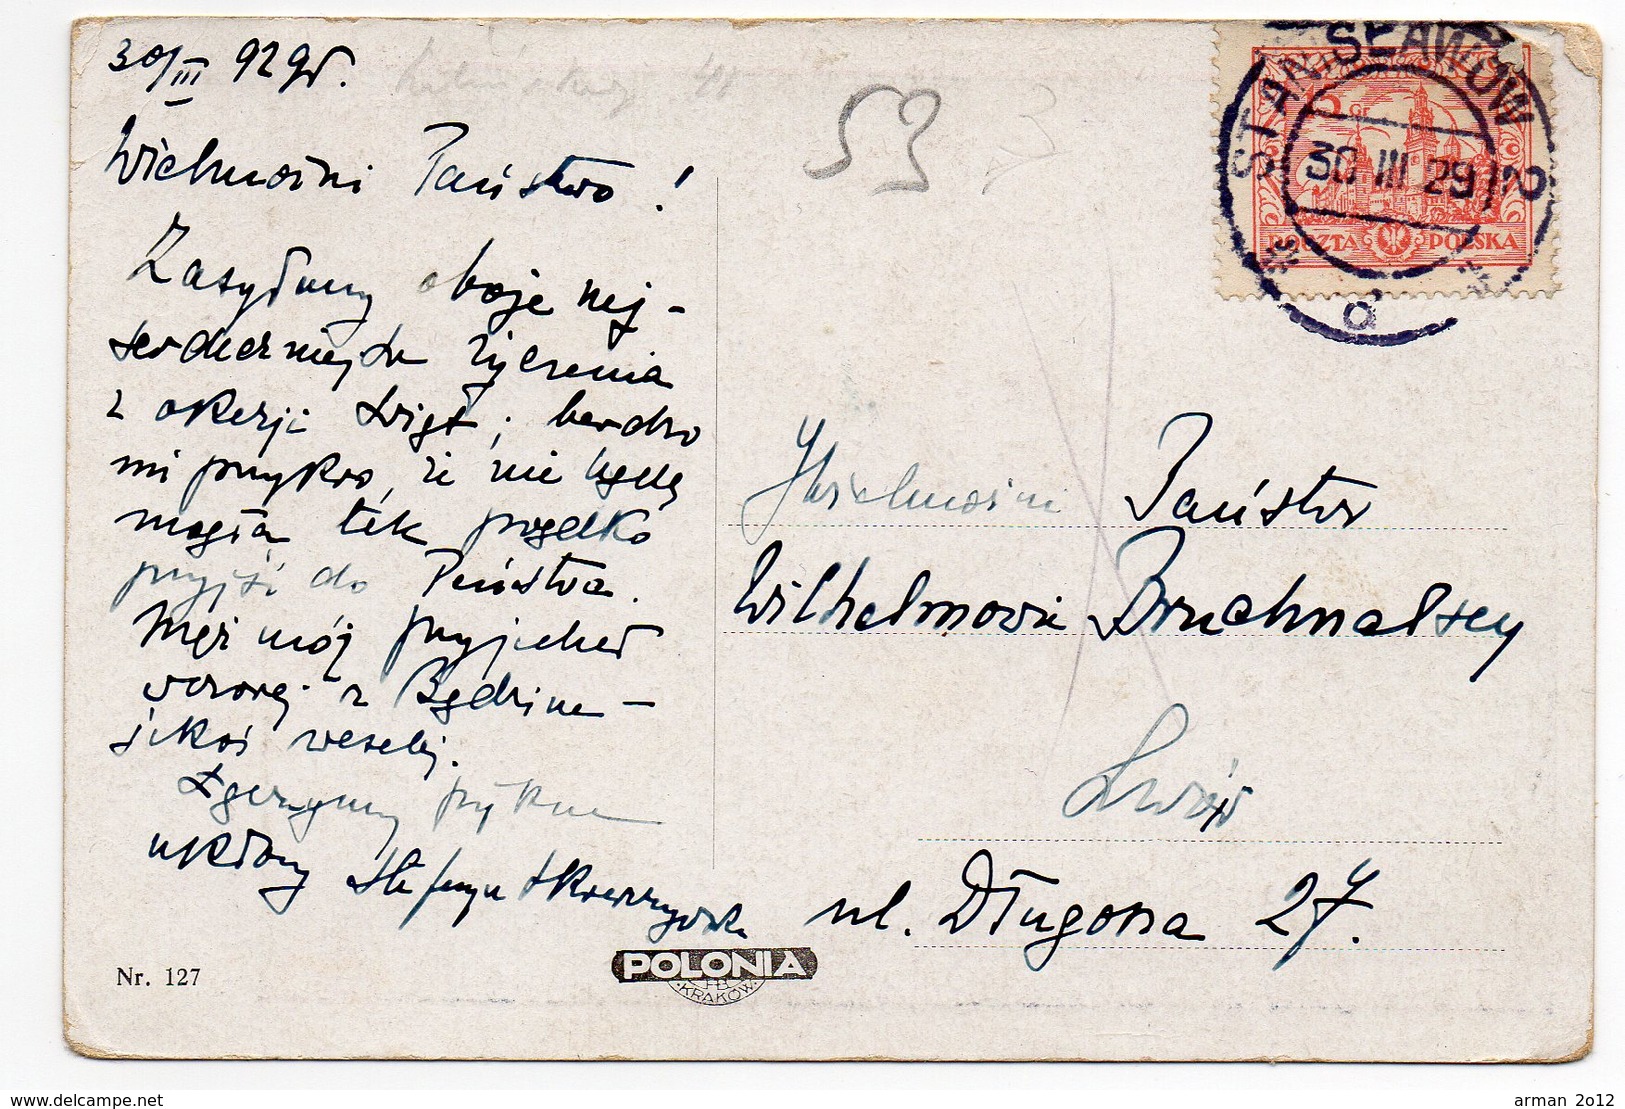 30/III 929r.
Wielmożni Państwo!
Zasyłamy oboje naj-
serdeczniejsze życzenia
z okazji Świąt; bardzo
mi przykro, że nie będę
mogła tak prędko
przyjść do Państwa.
Mąż mój przyjechał
wczoraj z Będzina –
jakoś weselej.
Łączymy piękne
ukłony Stefanja Skwarzyńska
Nr. 127
POLONIA
KRAKÓW
53
STANISŁAWÓW 2
30 III 29
d
15 Gr
POCZTA POLSKA
Wielmożni Państwo
Wilhelmowie Bruchnalscy
Lwów
ul. Długosza 27.
www.delcampe.net
arman 2012